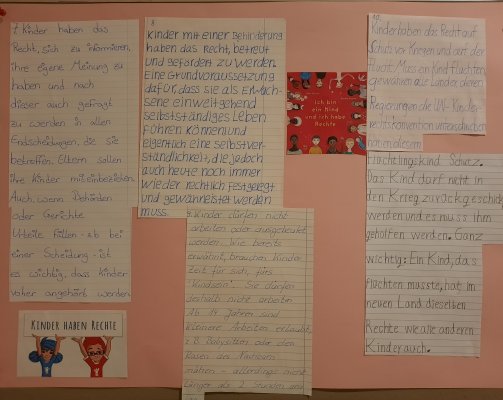 7 Kinder haben das
Recht, sich zu informieren,
ihre eigene Meinung zu
haben und nach
dieser auch gefragt
zu werden in allen
Entscheidungen, die sie
betreffen. Eltern sollen
ihre Kinder miteinbeziehen.
Auch wenn Behörden
oder Gerichte
Urteile fällen - z.b bei
einer Scheidung - ist
es wichtig, dass Kinder
vorher angehört werden.
KINDER HABEN RECHTE
8
Kinder mit einer Behinderung
haben das Recht, betreut
und gefördert zu werden.
Eine Grundvoraussetzung
dafür, dass sie als Erwach-
sene ein weitgehend
selbstständiges Leben
führen können und
eigentlich eine selbstver-
ständlichkeit, die jedoch
auch heute noch immer
wieder rechtlich festgelegt
und gewährleistet werden
muss.
Ich bin
ein Kind
und ich habe
Rechte
9. Kinder dürfen nicht
arbeiten oder ausgebeutet
werden. Wie bereits
erwähnt, brauchen Kinder
Zeit für sich, fürs
"Kindsein". Sie dürfen
deshalb nicht arbeiten.
Ab 14 Jahren sind
kleinere Arbeiten erlaubt,
z.B Babysitten oder den
Rasen des Nachbarn
mähen - allerdings nicht
länger als 2 Stunden am
10.
Kinder haben das Recht auf
Schutz vor Kriegen und auf der
Flucht. Muss ein Kind flüchten,
gewähren alle Länder, deren
Regierungen die UN-Kinder-
rechtskonvention unterschrieben
haben, diesem
Flüchtlingskind Schutz.
Das Kind darf nicht in
den Krieg zurückgeschickt
werden und es muss ihm
geholfen werden. Ganz
wichtig: Ein Kind, das
flüchten musste, hat im
neuen Land dieselben
Rechte wie alle anderen
Kinder auch.